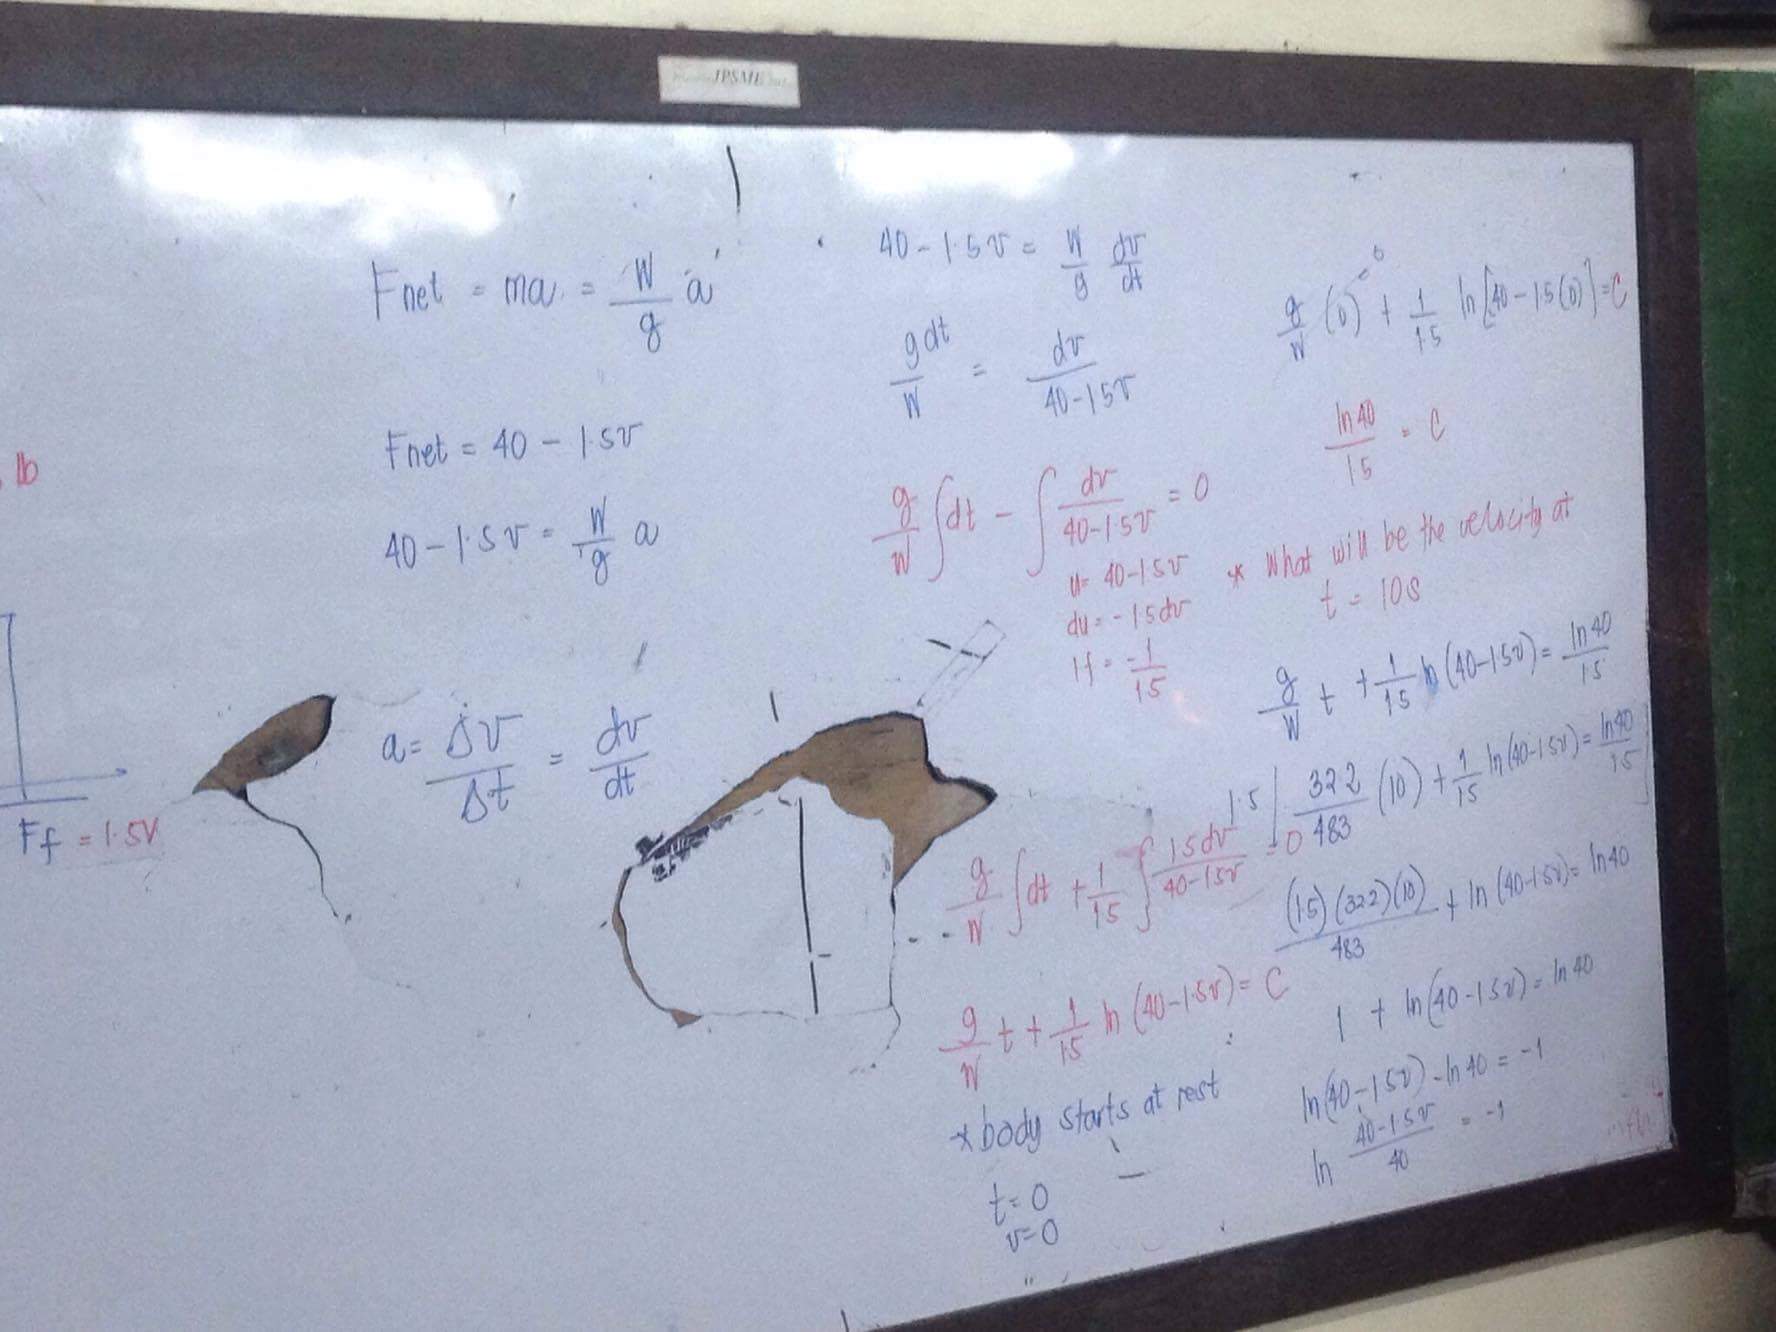 JPSME
lb
Ff = 1.5V
Fnet = ma = W/g a
Fnet = 40 - 1.5v
40 - 1.5v = W/g a
a = Δv/Δt = dv/dt
40 - 1.5v = W/g dv/dt
g dt/W = dv/40-1.5v
g/W ∫dt - ∫ dv/40-1.5v = 0
u = 40-1.5v
du = -1.5dv
If = -1/1.5
g/W ∫dt + 1/1.5 ∫ 1.5dv/40-1.5v = 0
g/W t + 1/1.5 ln (40-1.5v) = C
* body starts at rest
t = 0
v = 0
g/W (0) + 1/1.5 ln [40 - 1.5(0)] = C
ln 40/1.5 = C
* What will be the velocity at
t = 10s
g/W t + 1/1.5 ln (40-1.5v) = ln 40/1.5
1.5 [32.2/483 (10) + 1/1.5 ln (40-1.5v) = ln 40/1.5]
(1.5)(32.2)(10)/483 + ln (40-1.5v) = ln 40
1 + ln (40-1.5v) = ln 40
ln (40-1.5v) - ln 40 = -1
ln 40-1.5v/40 = -1